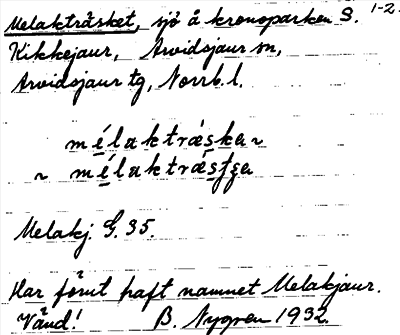 Melakträsket, sjö å kronoparken S. 1-2.
Kikkejaur, Arvidsjaur sn,
Arvidsjaur tg, Norrb. l.
mélaktrǽska ~
~ mélaktrǽsʃʒa
Melakj. G. 35.
Har förut haft namnet Melakjaur.
Vänd! B. Nygren 1932.